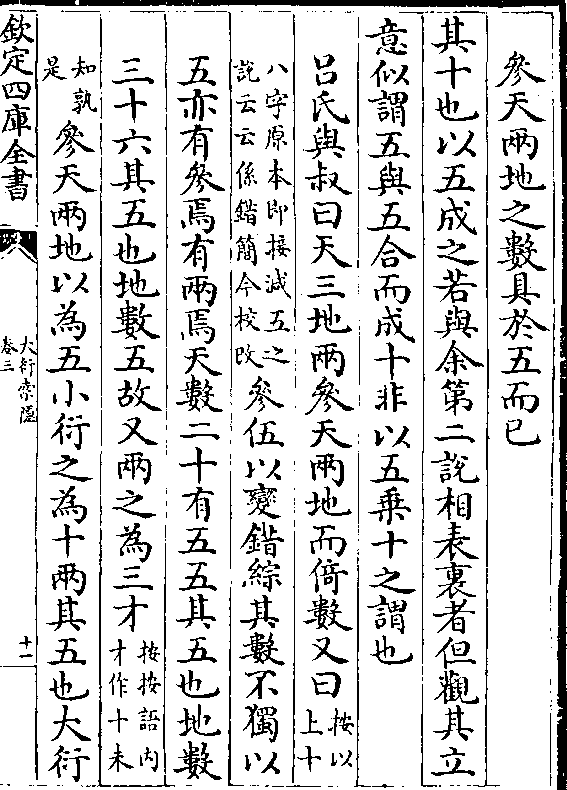 參天兩地之數具於五而已
其十也以五成之若與余第二說相表裏者但觀其立
意似謂五與五合而成十非以五乗十之謂也
呂氏與叔曰天三地兩參天兩地而倚數又曰按以
上十
八字原本即接減五之
說云云係錯簡今校改參伍以變錯綜其數不獨以
五亦有參焉有兩焉天數二十有五五其五也地數
三十六其五也地數五故又兩之為三才按按語内
才作十未
知孰
是參天兩地以為五小衍之為十兩其五也大衍
欽定四庫全書
大衍索隱
卷三
十一